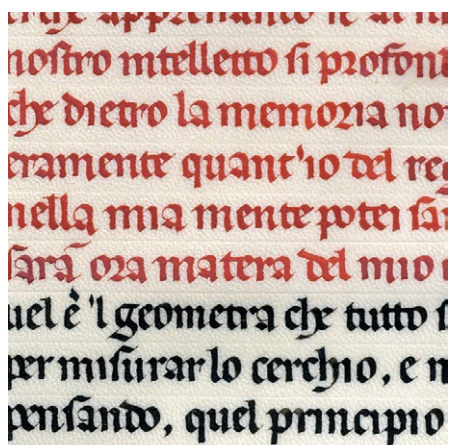 nostro intelletto si profon
che dietro la memoria no
eramente quant'io del reg
nella mia mente potei
sarà ora matera del mio
uel è 'l geometra che tutto s
per misurar lo cerchio, e
pensando, quel principio